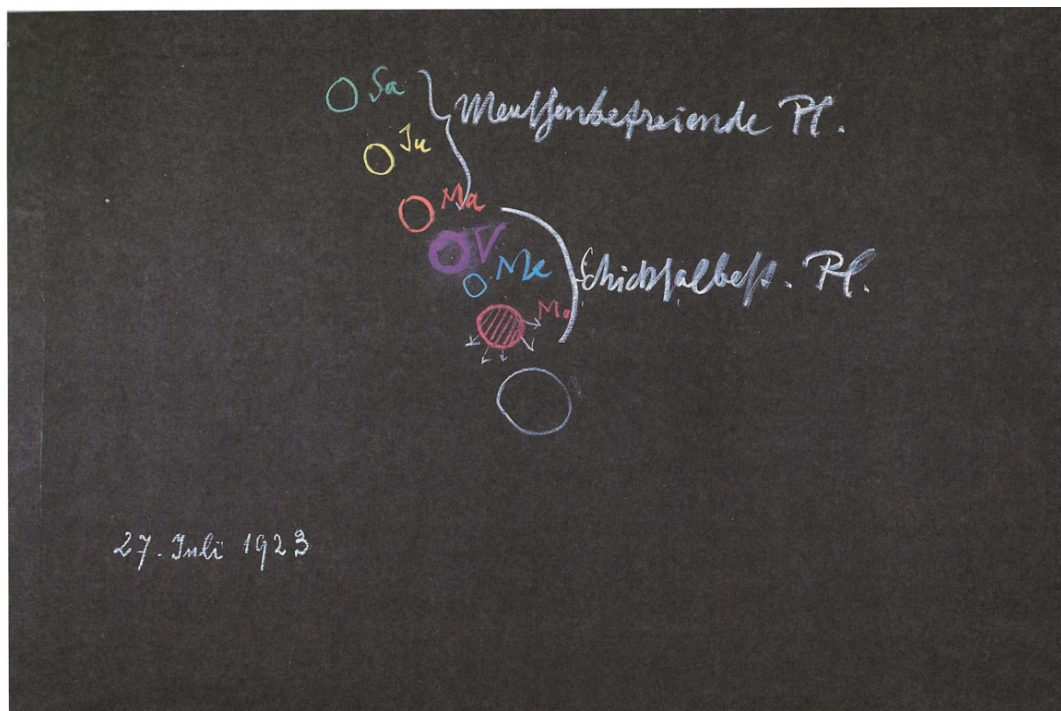 Sa
Menschenbefreiende Pl.
Ju
Ma
V
Me
Schicksalbest. Pl.
Mo
27. Juli 1923